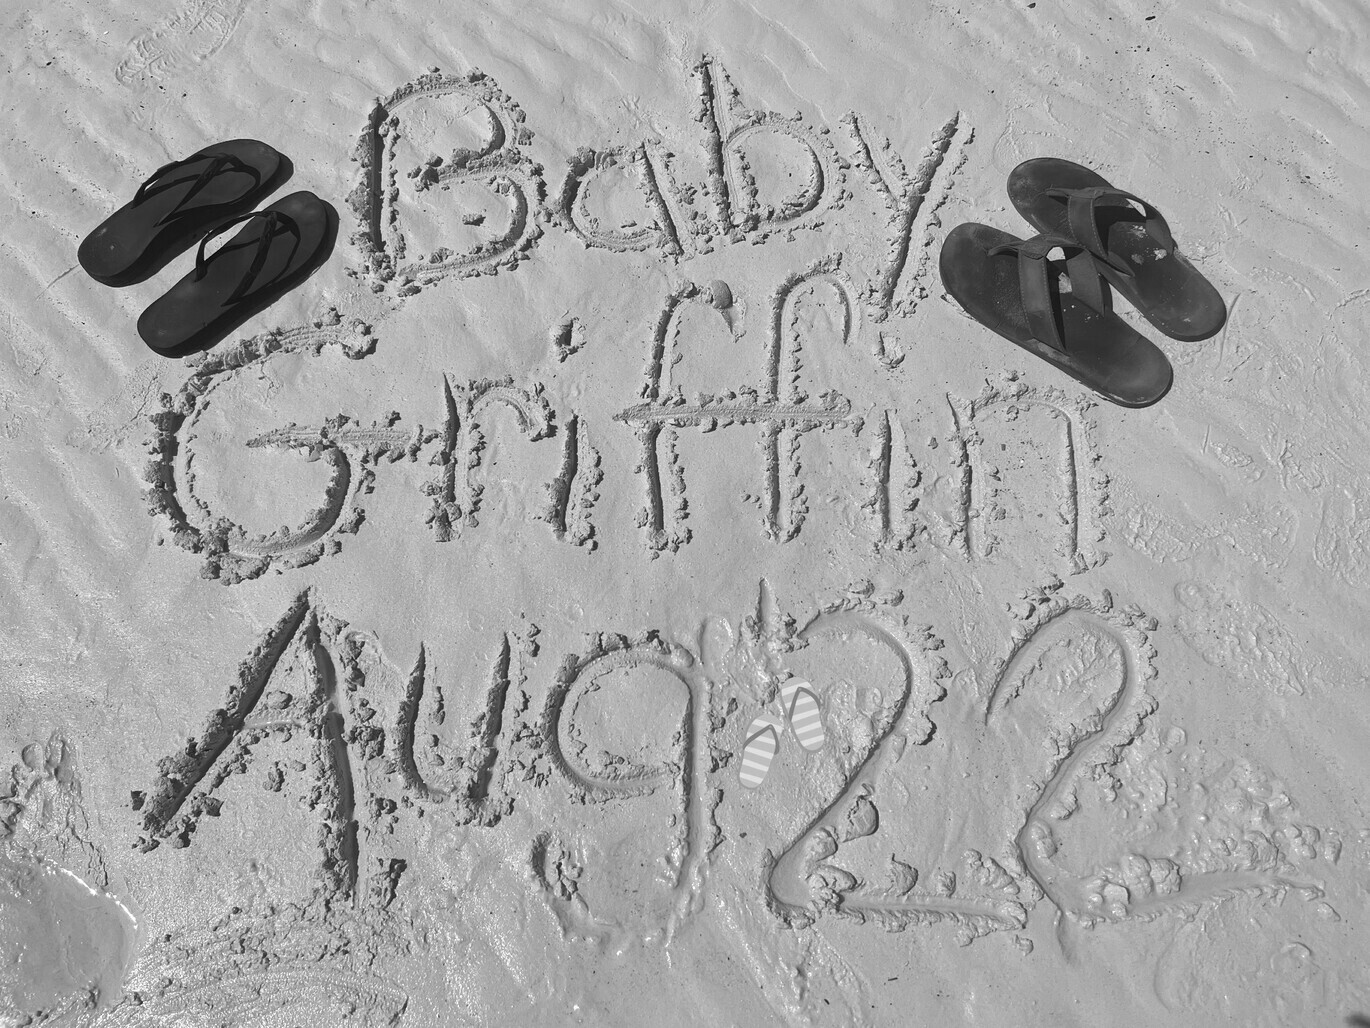 Baby
Griffin
Aug'22